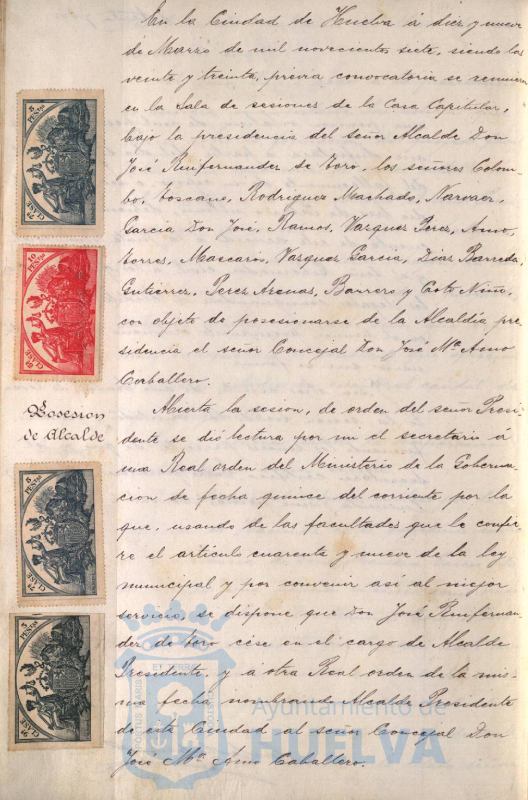 En la Ciudad de Huelva á diez y nueve
de Marzo de mil novecientos siete, siendo las
veinte y treinta, previa convocatoria se reunieron
en la Sala de sesiones de la Casa Capitular,
bajo la presidencia del señor Alcalde Don
José Ruifernandez de Toro, los señores Colom-
bo, Toscano, Rodriguez Machado, Narvaez,
Garcia Don José, Ramos, Vazquez Perez, Amo,
Torres, Mascaros, Vazquez Garcia, Diaz Barreda,
Gutierrez, Perez Arenas, Barrero y Coto Niño,
con objeto de posesionarse de la Alcaldía pre-
sidencia el señor Concejal Don José Mª Amo
Corballero.
Posesion
de Alcalde
Abierta la sesion, de orden del señor Presi-
dente se dió lectura por mi el secretario á
una Real orden del Ministerio de la Goberna-
cion de fecha quince del corriente por la
que, usando de las facultades que le confie-
re el artículo cuarenta y nueve de la ley
municipal y por convenir así al mejor
servicio, se dispone que Don José Ruifernan-
dez de Toro cése en el cargo de Alcalde
Presidente, y á otra Real orden de la mis-
ma fecha nombrando Alcalde Presidente
de esta Ciudad al señor Concejal Don
José Mª Amo Caballero.
5 PESETAS
CLASE 7ª
10 PESETAS
CLASE
5 PESETAS
CLASE 7ª
5 PESETAS
CLASE
Ayuntamiento de
HUELVA